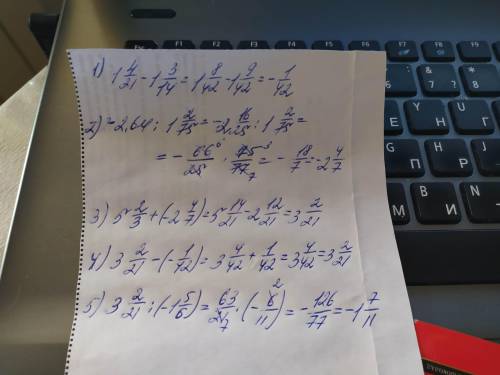 1) 1 4/21 - 1 3/14 = 1 8/42 - 1 9/42 = - 1/42
2) -2,64 : 1 2/75 = -2 16/25 : 1 2/75 =
= - 66⁶/25 · 75³/77₇ = - 18/7 = -2 4/7
3) 5 2/3 + (-2 4/7) = 5 14/21 - 2 12/21 = 3 2/21
4) 3 2/21 - (- 1/42) = 3 4/42 + 1/42 = 3 4/42 = 3 2/21
5) 3 2/21 : (-1 5/6) = 63/21₇ · (- 6²/11) = - 126/77 = -1 7/11